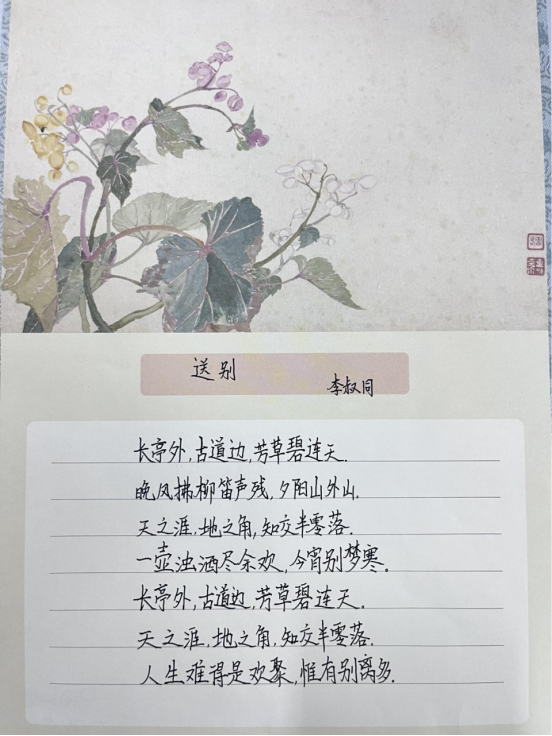 送别
李叔同
长亭外,古道边,芳草碧连天.
晚风拂柳笛声残,夕阳山外山.
天之涯,地之角,知交半零落.
一壶浊洒尽余欢,今宵别梦寒.
长亭外,古道边,芳草碧连天.
天之涯,地之角,知交半零落.
人生难得是欢聚,惟有别离多.